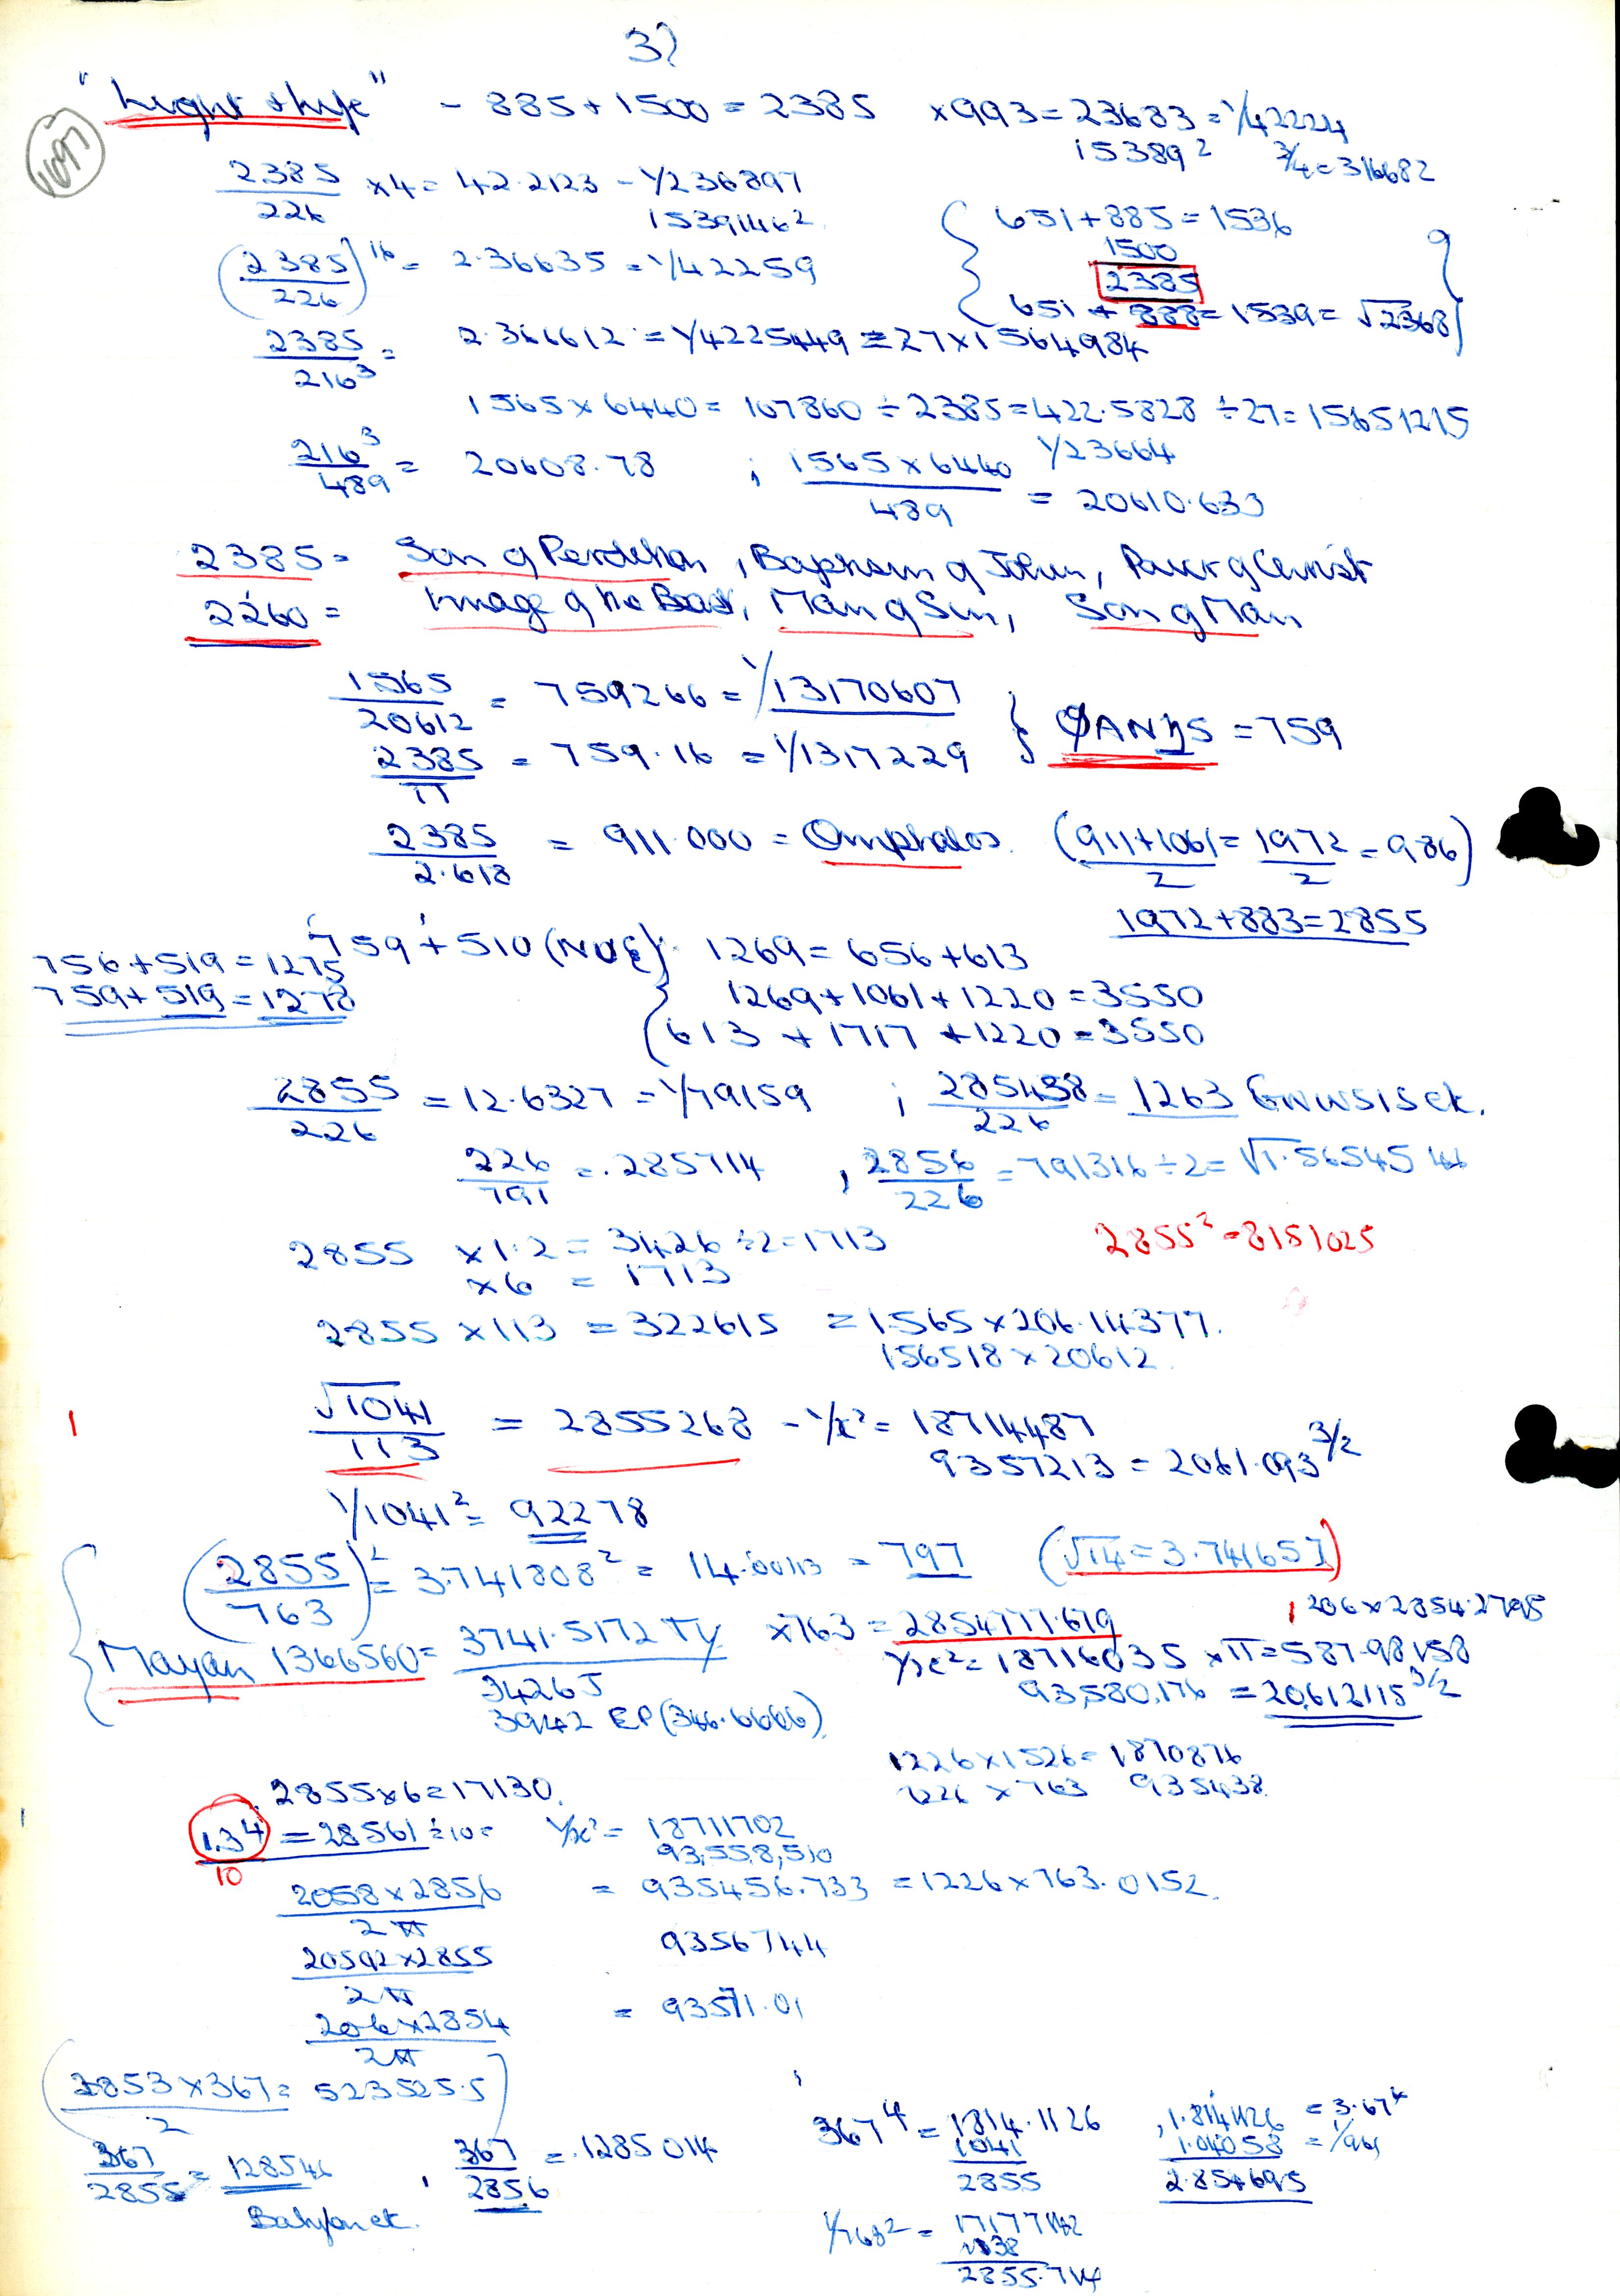 3)
"Light & Life" - 885 + 1500 = 2385 ×993 = 23683 = 1/42224
1097
15389² 3/4 = 316682
2385/226 ×4 = 42.2123 - 1/236897
15391462
(2385/226)^16 = 2.36635 = 1/42259
{ 651 + 885 = 1536
1500
2385
651 + 888 = 1539 = √2368 }
2385/216³ = 2.366612 = 1/4225449 = 27 × 1564984
1565 × 6440 = 107860 ÷ 2385 = 422.5828 ÷ 27 = 15651215
1/23664
216³/489 = 20608.78 ; 1565 × 6440/489 = 20610.633
2385 = Son of Perdition, Baptism of John, Power of Christ
2260 = Image of the Beast, Man of Sin, Son of Man
1565/20612 = 759266 = 1/13170607
2385/π = 759.16 = 1/1317229 } ΦANHS = 759
2385/2.618 = 911.000 = Omphalos. (911+1061/2 = 1972/2 = 986)
1972 + 883 = 2855
759 + 510 (NUE) 1269 = 656 + 613
756 + 519 = 1275
759 + 519 = 1278
{ 1269 + 1061 + 1220 = 3550
613 + 1717 + 1220 = 3550
2855/226 = 12.6327 = 1/79159 ; 285438/226 = 1263 GNWSIS etc.
226/791 = .285714 , 2856/226 = 791316 ÷ 2 = √1.56545
2855 ×1.2 = 3426 ÷2 = 1713 2855² = 8151025
×6 = 1713
2855 × 113 = 322615 = 1565 × 206.14377.
156518 × 20612.
√1041/113 = 2855268 - 1/x² = 18714487
9357213 = 2061.093^3/2
1/1041² = 92278
(2855/763)² = 3.741808² = 14.00113 = 797 (√14 = 3.741657)
206 × 2854.2795
Mayan 1366560 = 3741.5172 TY ×763 = 2854777.679
1/x² = 18716035 ×π = 587.98158
3426 J
93,580,176 = 20,612115^3/2
3942 EP (346.6666)
1226 × 1526 = 1870876
2855 × 6 = 17130.
1226 × 763 935438
1.3⁴/10 = 28561 ÷10 = 1/x² = 18711702
93,558,510
2058 × 2856/2π = 935456.733 = 1226 × 763.0152.
20592 × 2855/2π 9356744
206 × 2854/2π = 93571.01
(2853 × 367/2 = 523525.5)
367/2855 = 128546 , 367/2856 = .1285014
Babylon etc.
367⁴ = 1814.1126
1041
2855
, 1.8141126 = 3.67⁴
1.04058 = 1/961
2.854695
1/763² = 1717742
1138
2855.714